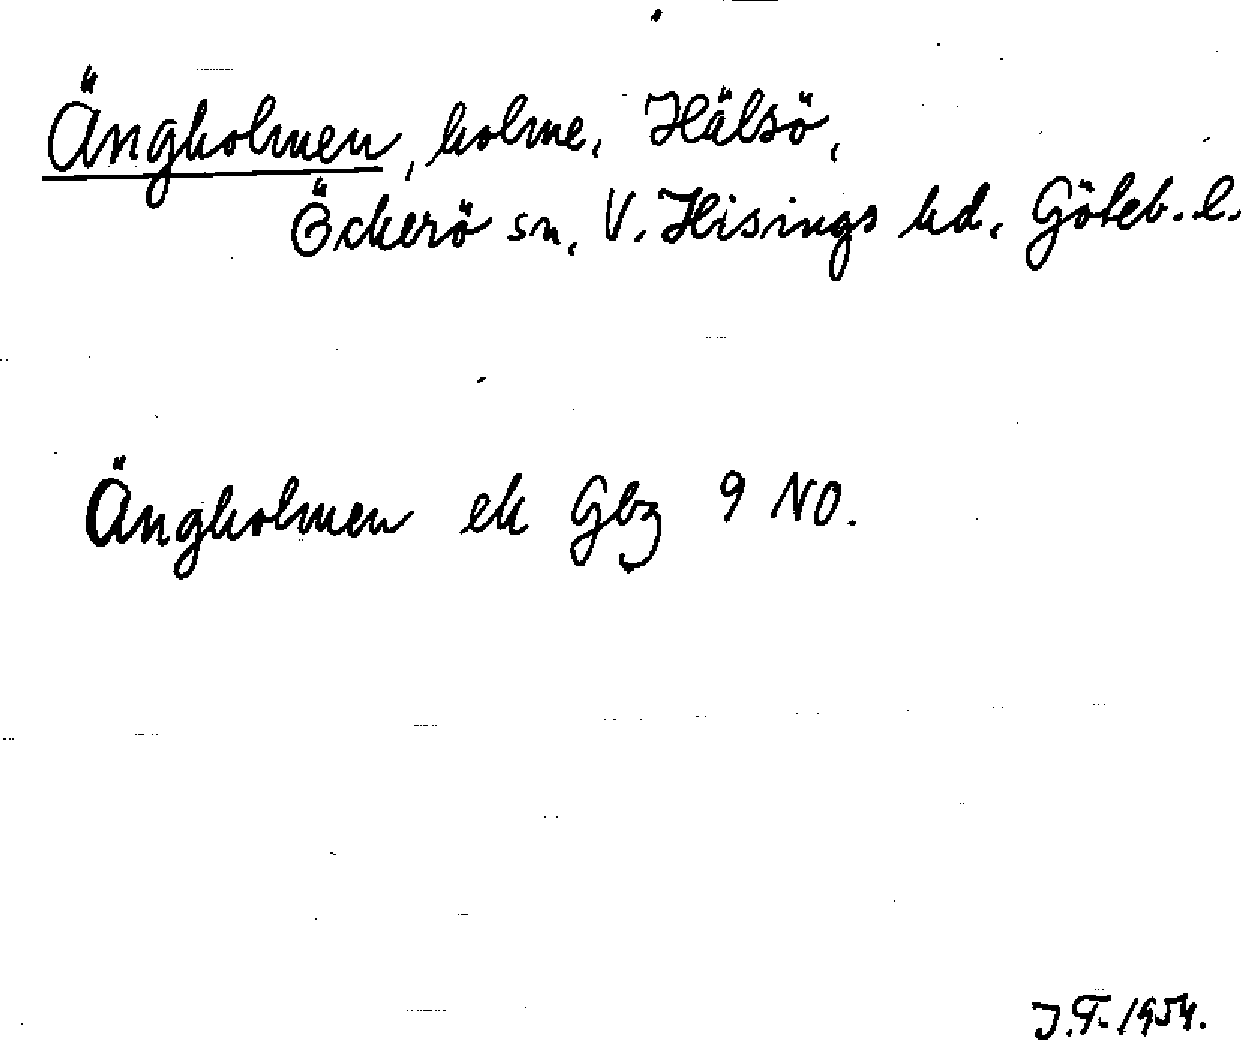 Ängholmen, holme, Hälsö,
Öckerö sn, V. Hisings hd, Göteb. l.
Ängholmen ek Gbg 9 NO.
J.T. 1954.